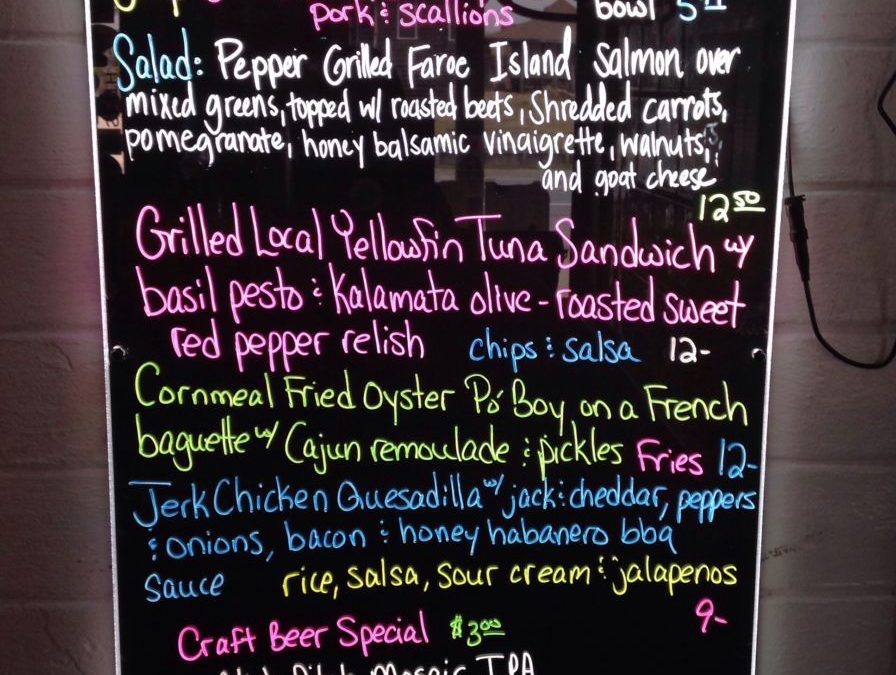 pork & scallions bowl 5
Salad: Pepper Grilled Faroe Island Salmon over
mixed greens, topped w/ roasted beets, shredded carrots,
pomegranate, honey balsamic vinaigrette, walnuts,
and goat cheese
12 50
Grilled Local Yellowfin Tuna Sandwich w/
basil pesto & Kalamata olive-roasted sweet
red pepper relish chips & salsa 12-
Cornmeal Fried Oyster Po' Boy on a French
baguette w/ Cajun remoulade & pickles Fries 12-
Jerk Chicken Quesadilla w/ jack & cheddar, peppers
& onions, bacon & honey habanero bbq
sauce rice, salsa, sour cream & jalapenos
9-
Craft Beer Special $3.00
Mosaic IPA